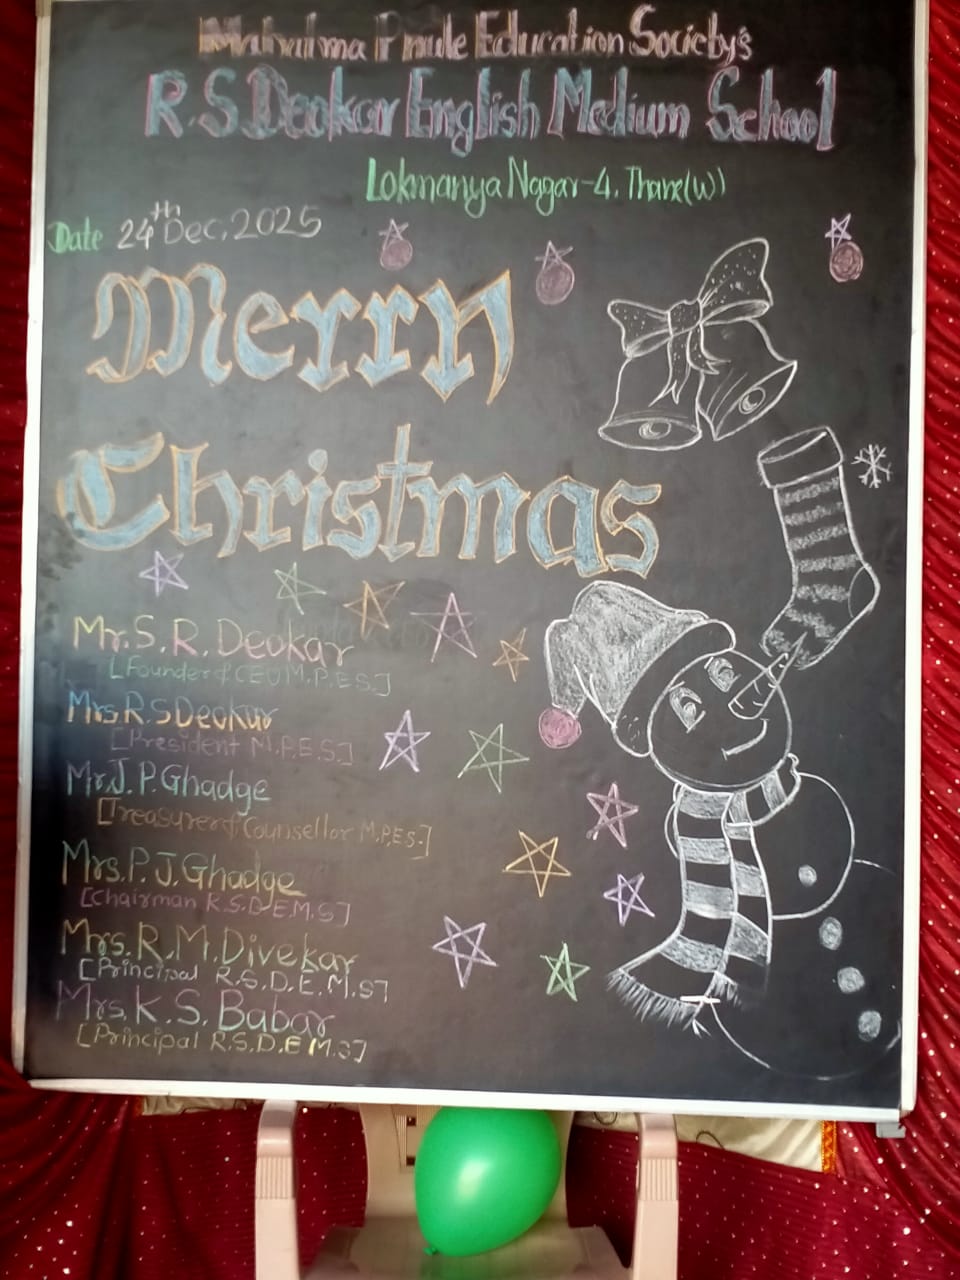 Mahatma Phule Education Society's
R.S.Deokar English Medium School
Lokmanya Nagar-4. Thane(W)
Date 24th Dec, 2025
Merry
Christmas
Mr.S.R.Deokar
[Founder & CEO M.P.E.S.]
Mrs R.S Deokar
[President M.P.E.S.]
Mr.J.P.Ghadge
[Treasurer & Counsellor M.P.E.S.]
Mrs.P.J.Ghadge
[Chairman R.S.D.E.M.S]
Mrs.R.M.Divekar
[Principal R.S.D.E.M.S]
Mrs.K.S.Babar
[Principal R.S.D.E M.S]